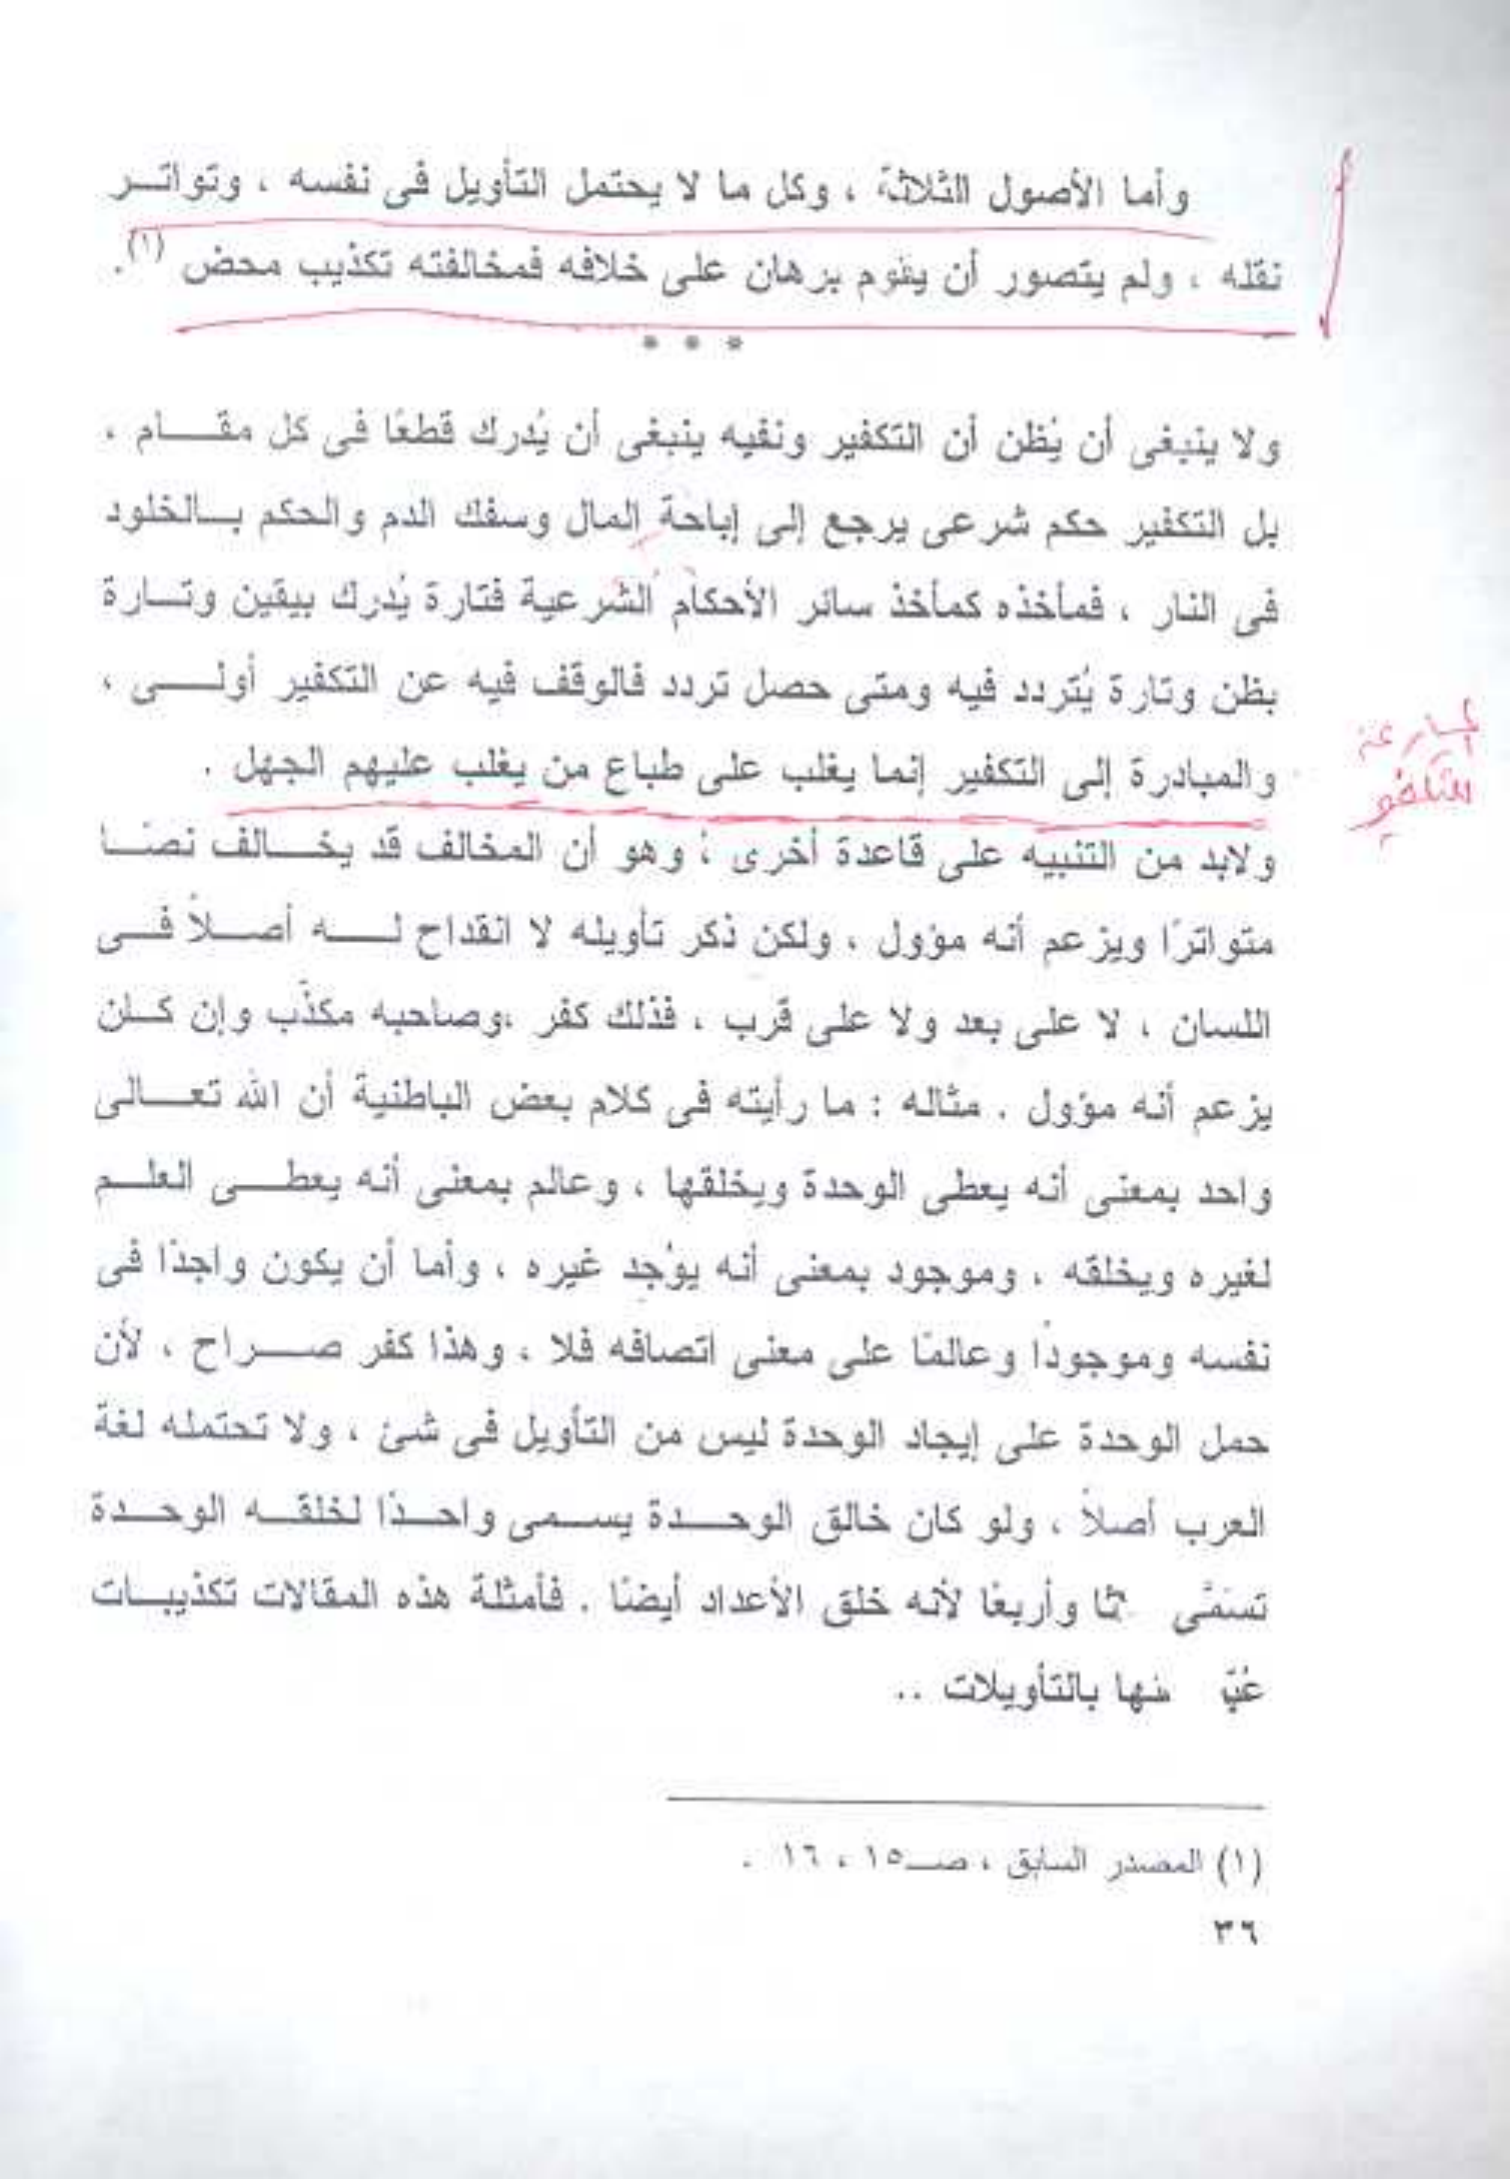 وأما الأصول الثلاثة ، وكل ما لا يحتمل التأويل فى نفسه ، وتواتر
نقله ، ولم يتصور أن يقوم برهان على خلافه فمخالفته تكذيب محض (١).
* * *
ولا ينبغى أن يُظن أن التكفير ونفيه ينبغى أن يُدرك قطعًا فى كل مقام ،
بل التكفير حكم شرعى يرجع إلى إباحة المال وسفك الدم والحكم بالخلود
فى النار ، فمأخذه كمأخذ سائر الأحكام الشرعية فتارة يُدرك بيقين وتارة
بظن وتارة يُتردد فيه ومتى حصل تردد فالوقف فيه عن التكفير أولى ،
والمبادرة إلى التكفير إنما يغلب على طباع من يغلب عليهم الجهل .
التكفير
ولابد من التنبيه على قاعدة أخرى ؛ وهو أن المخالف قد يخالف نصًا
متواترًا ويزعم أنه مؤول ، ولكن ذكر تأويله لا انقداح له أصلاً فى
اللسان ، لا على بعد ولا على قرب ، فذلك كفر ،وصاحبه مكذّب وإن كان
يزعم أنه مؤول . مثاله : ما رأيته فى كلام بعض الباطنية أن الله تعالى
واحد بمعنى أنه يعطى الوحدة ويخلقها ، وعالم بمعنى أنه يعطى العلم
لغيره ويخلقه ، وموجود بمعنى أنه يوُجد غيره ، وأما أن يكون واحدًا فى
نفسه وموجودًا وعالمًا على معنى اتصافه فلا ، وهذا كفر صراح ، لأن
حمل الوحدة على إيجاد الوحدة ليس من التأويل فى شئ ، ولا تحتمله لغة
العرب أصلاً ، ولو كان خالق الوحدة يسمى واحدًا لخلقه الوحدة
تسمَّى وأربعًا لأنه خلق الأعداد أيضًا . فأمثلة هذه المقالات تكذيبات
بالتأويلات ..
(١) المصدر السابق ، صـ١٥ ، ١٦ .
٣٦